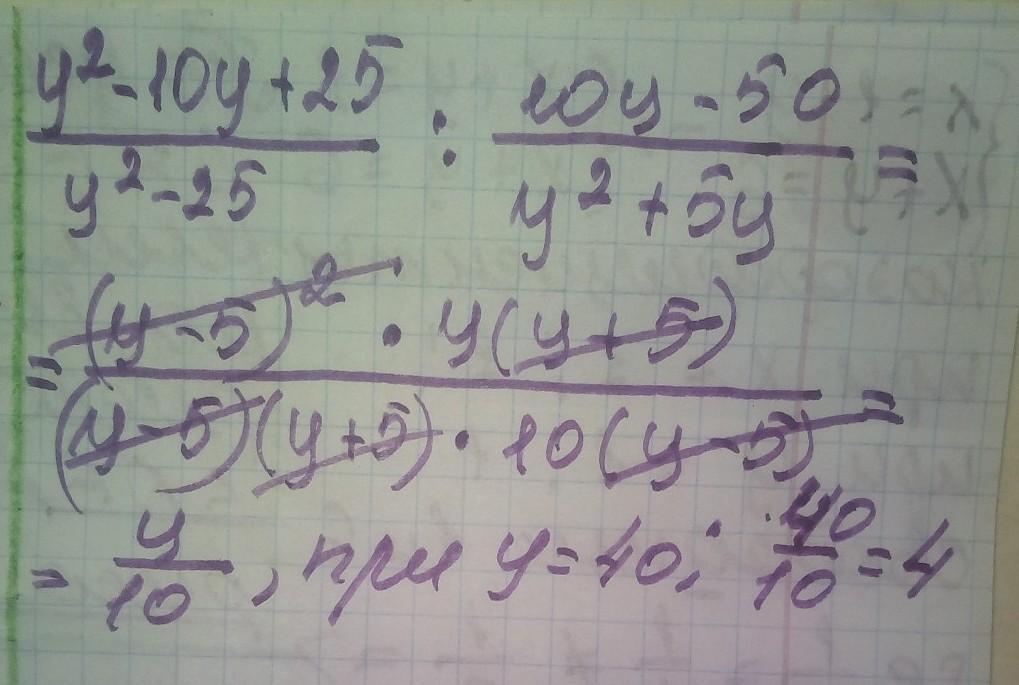 y² - 10y + 25 / y² - 25 : 10y - 50 / y² + 5y =
= (y - 5)² · y(y + 5) / (y - 5)(y + 5) · 10(y - 5) =
= y / 10, при y = 40; 40 / 10 = 4